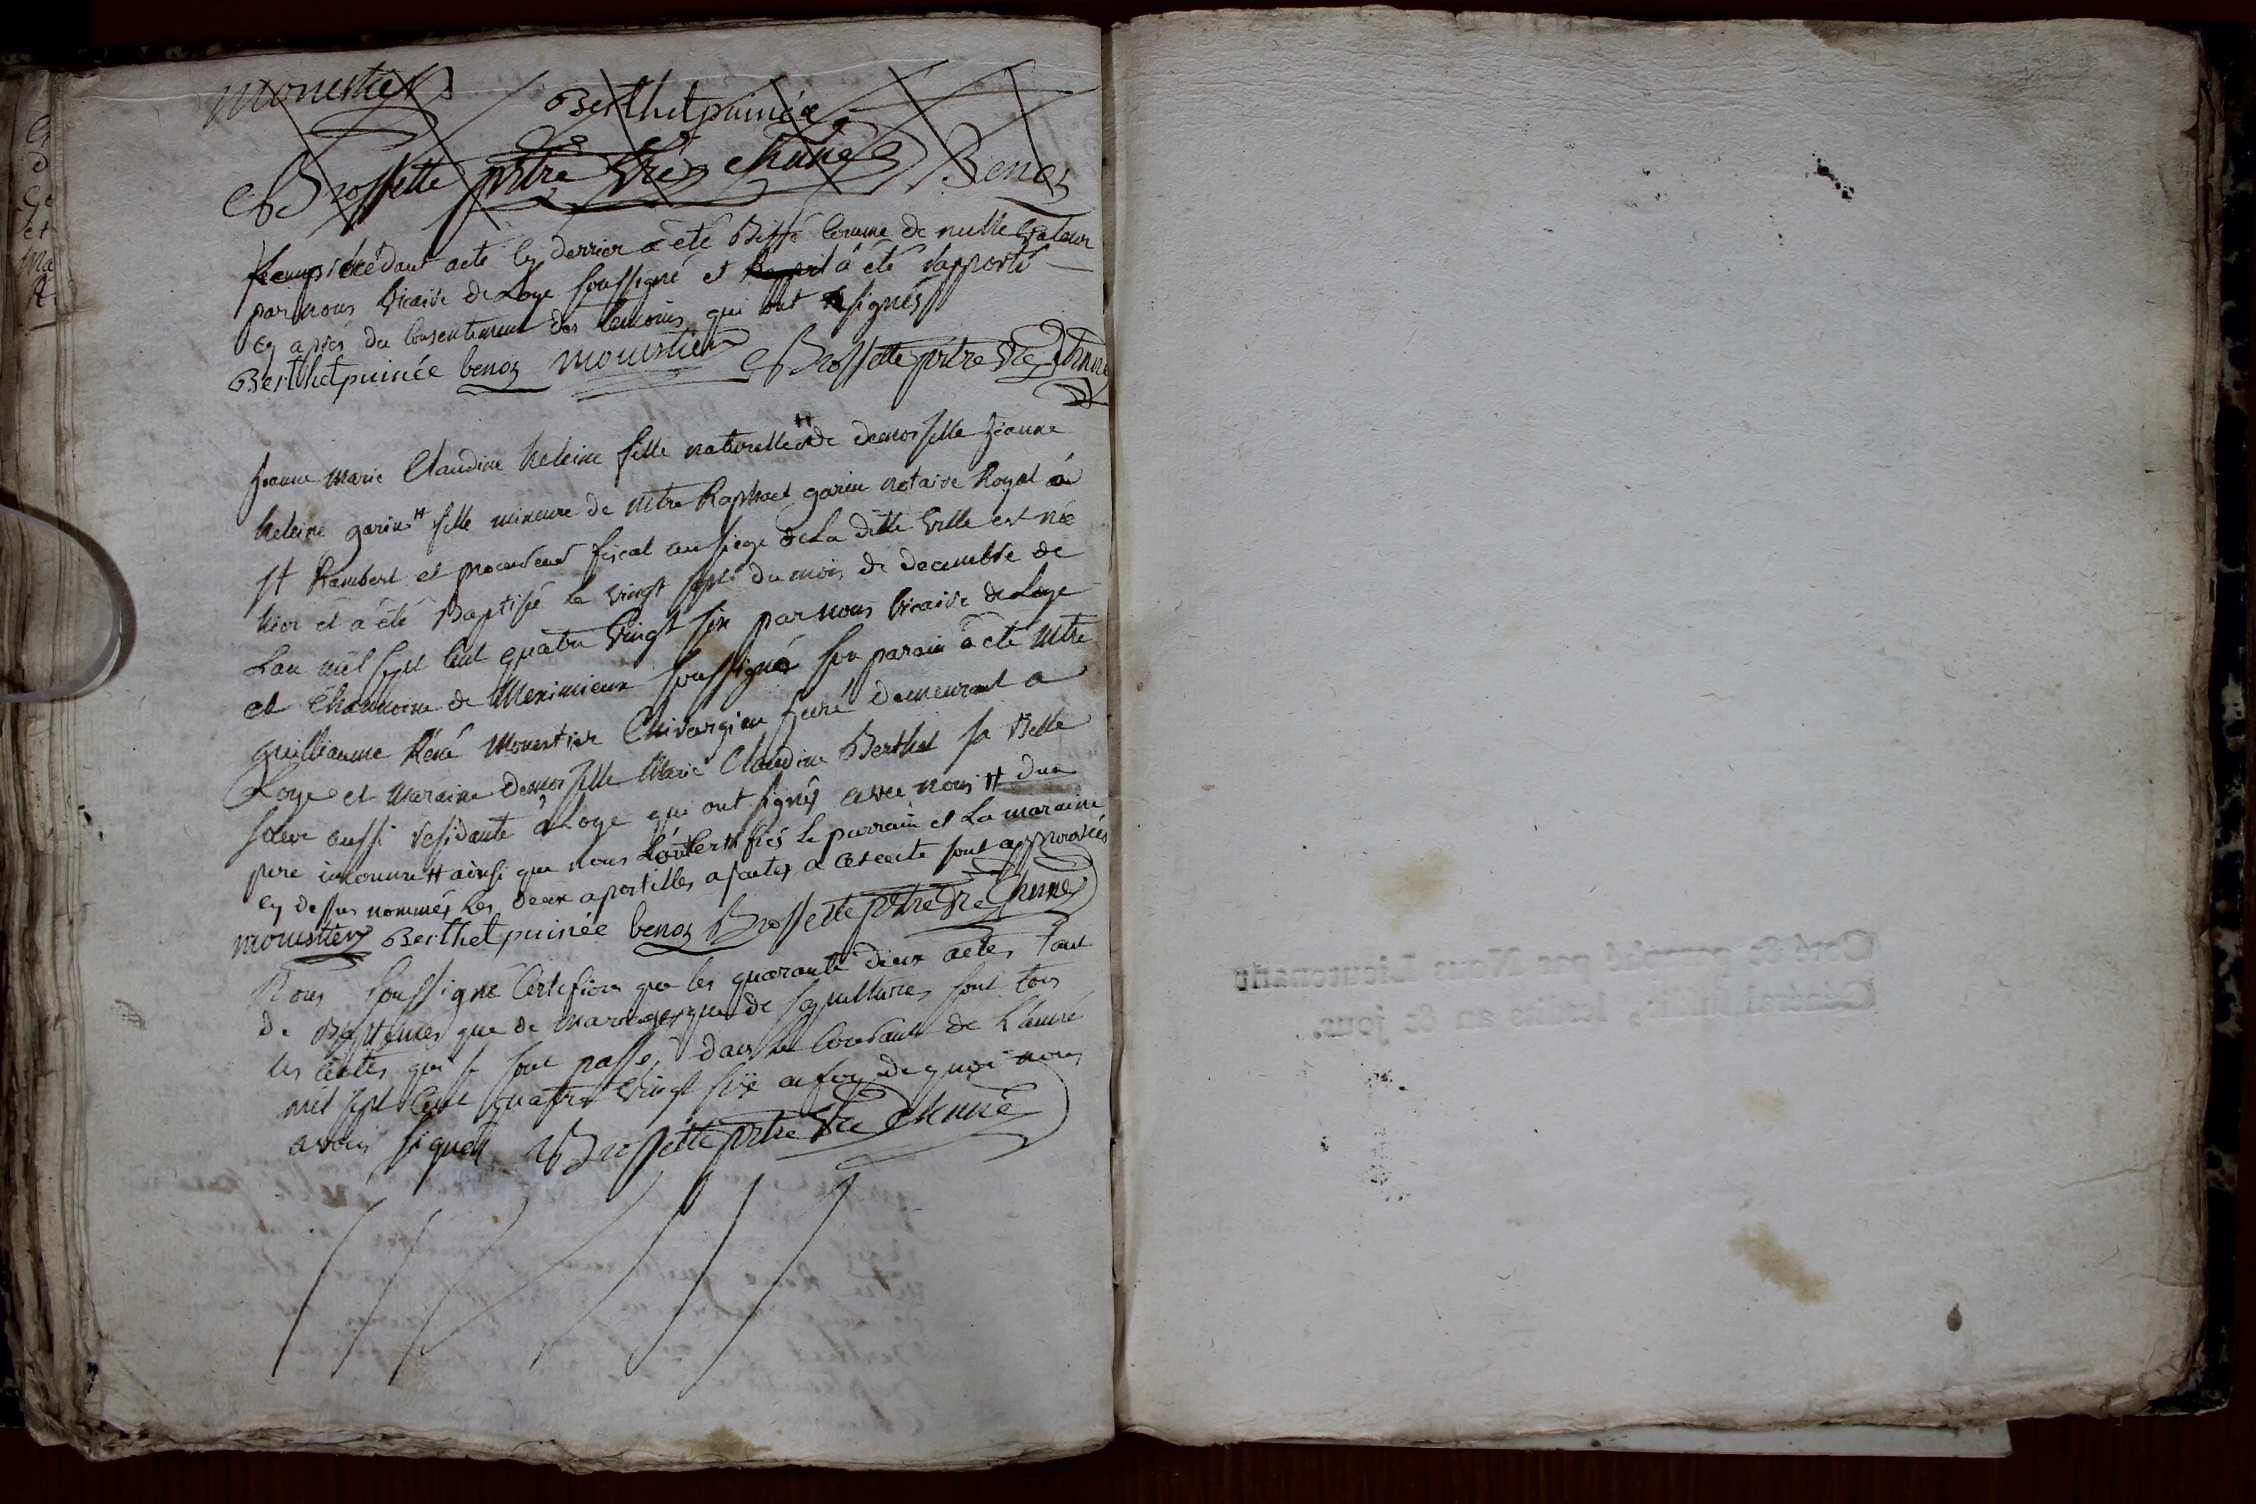 monestier
Berthet puinée
Brossette ptre vre chnne Benoz
précédant acte cy derrier a été Biffé comme de nulle valeur
par nous vicaire de Loye soussigné et a été rapporté
cy après du consentement des temoins qui ont signés
Berthet puinée benoz monestier Brossette ptre vre chnne
jeanne marie Claudine heleine fille naturelle # de demoiselle jeanne
heleine garin # fille mineure de mtre Raphael garin notaire Royal à
st Rambert et procureur fiscal au siege de La ditte ville est née
hier et a été Baptisée le vingt sept du mois de decembre de
Lan mil sept cent quatre vingt six par nous vicaire de Loye
et chanoine de Meximieux soussigné son parain a été mtre
guilleaume René monestier Chirurgien juré demeurant a
Loye et maraine demoiselle Marie Claudine Berthet sa Belle
soeur aussi residante a Loye qui ont signés avec nous # dun
pere inconnu # ainsi que nous L'ont certifiés le parrain et La maraine
cy dessus nommés Les deux apostilles ajoutés a cet acte sont approuvées
monestier Berthet puinée benoz Brossette ptre vre chnne
Nous soussigné Certifions que les quarante deux actes tant
de Baptemes que de mariages que de sepultures sont tous
les actes qui se sont passés dans le Courant de L'année
mil sept cent quatre vingt six en foy de quoi nous
avons signé Brossette ptre vre chnne
Coté & paraphé par Nous Lieutenant
Général susdit, lesdits an & jour.